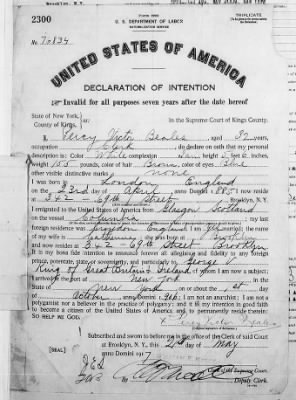 2300
TRIPLICATE
U. S. DEPARTMENT OF LABOR
NATURALIZATION SERVICE
No. 7-134
UNITED STATES OF AMERICA
DECLARATION OF INTENTION
Invalid for all purposes seven years after the date hereof
State of New York,
County of Kings,
In the Supreme Court of Kings County.
I, Percy Victor Beales aged 32 years,
occupation Clerk, do declare on oath that my personal
description is: Color White, complexion, height feet inches,
weight 155 pounds, color of hair Brown, color of eyes Blue
other visible distinctive marks none
I was born in London England
on the 23rd day of April, anno Domini 1885; I now reside
at 342 - 69th Street Brooklyn
I emigrated to the United States of America from Glasgow Scotland
on the vessel Columbia; my last
foreign residence was Croydon England; I am married; the name
of my wife is; she was born in Brooklyn
and now resides at 342 - 69th Street Brooklyn
It is my bona fide intention to renounce forever all allegiance and fidelity to any foreign
prince, potentate, state, or sovereignty, and particularly to George V
King of Great Britain & Ireland, of whom I am now a subject;
I arrived at the port of New York, in the
State of New York, on or about the 1st day
of October, anno Domini 1906; I am not an anarchist; I am not a
polygamist nor a believer in the practice of polygamy; and it is my intention in good faith
to become a citizen of the United States of America and to permanently reside therein:
SO HELP ME GOD.
Subscribed and sworn to before me in the office of the Clerk of said Court
[SEAL]
at Brooklyn, N. Y., this day of May
anno Domini 1917
Supreme Court.
Deputy Clerk.